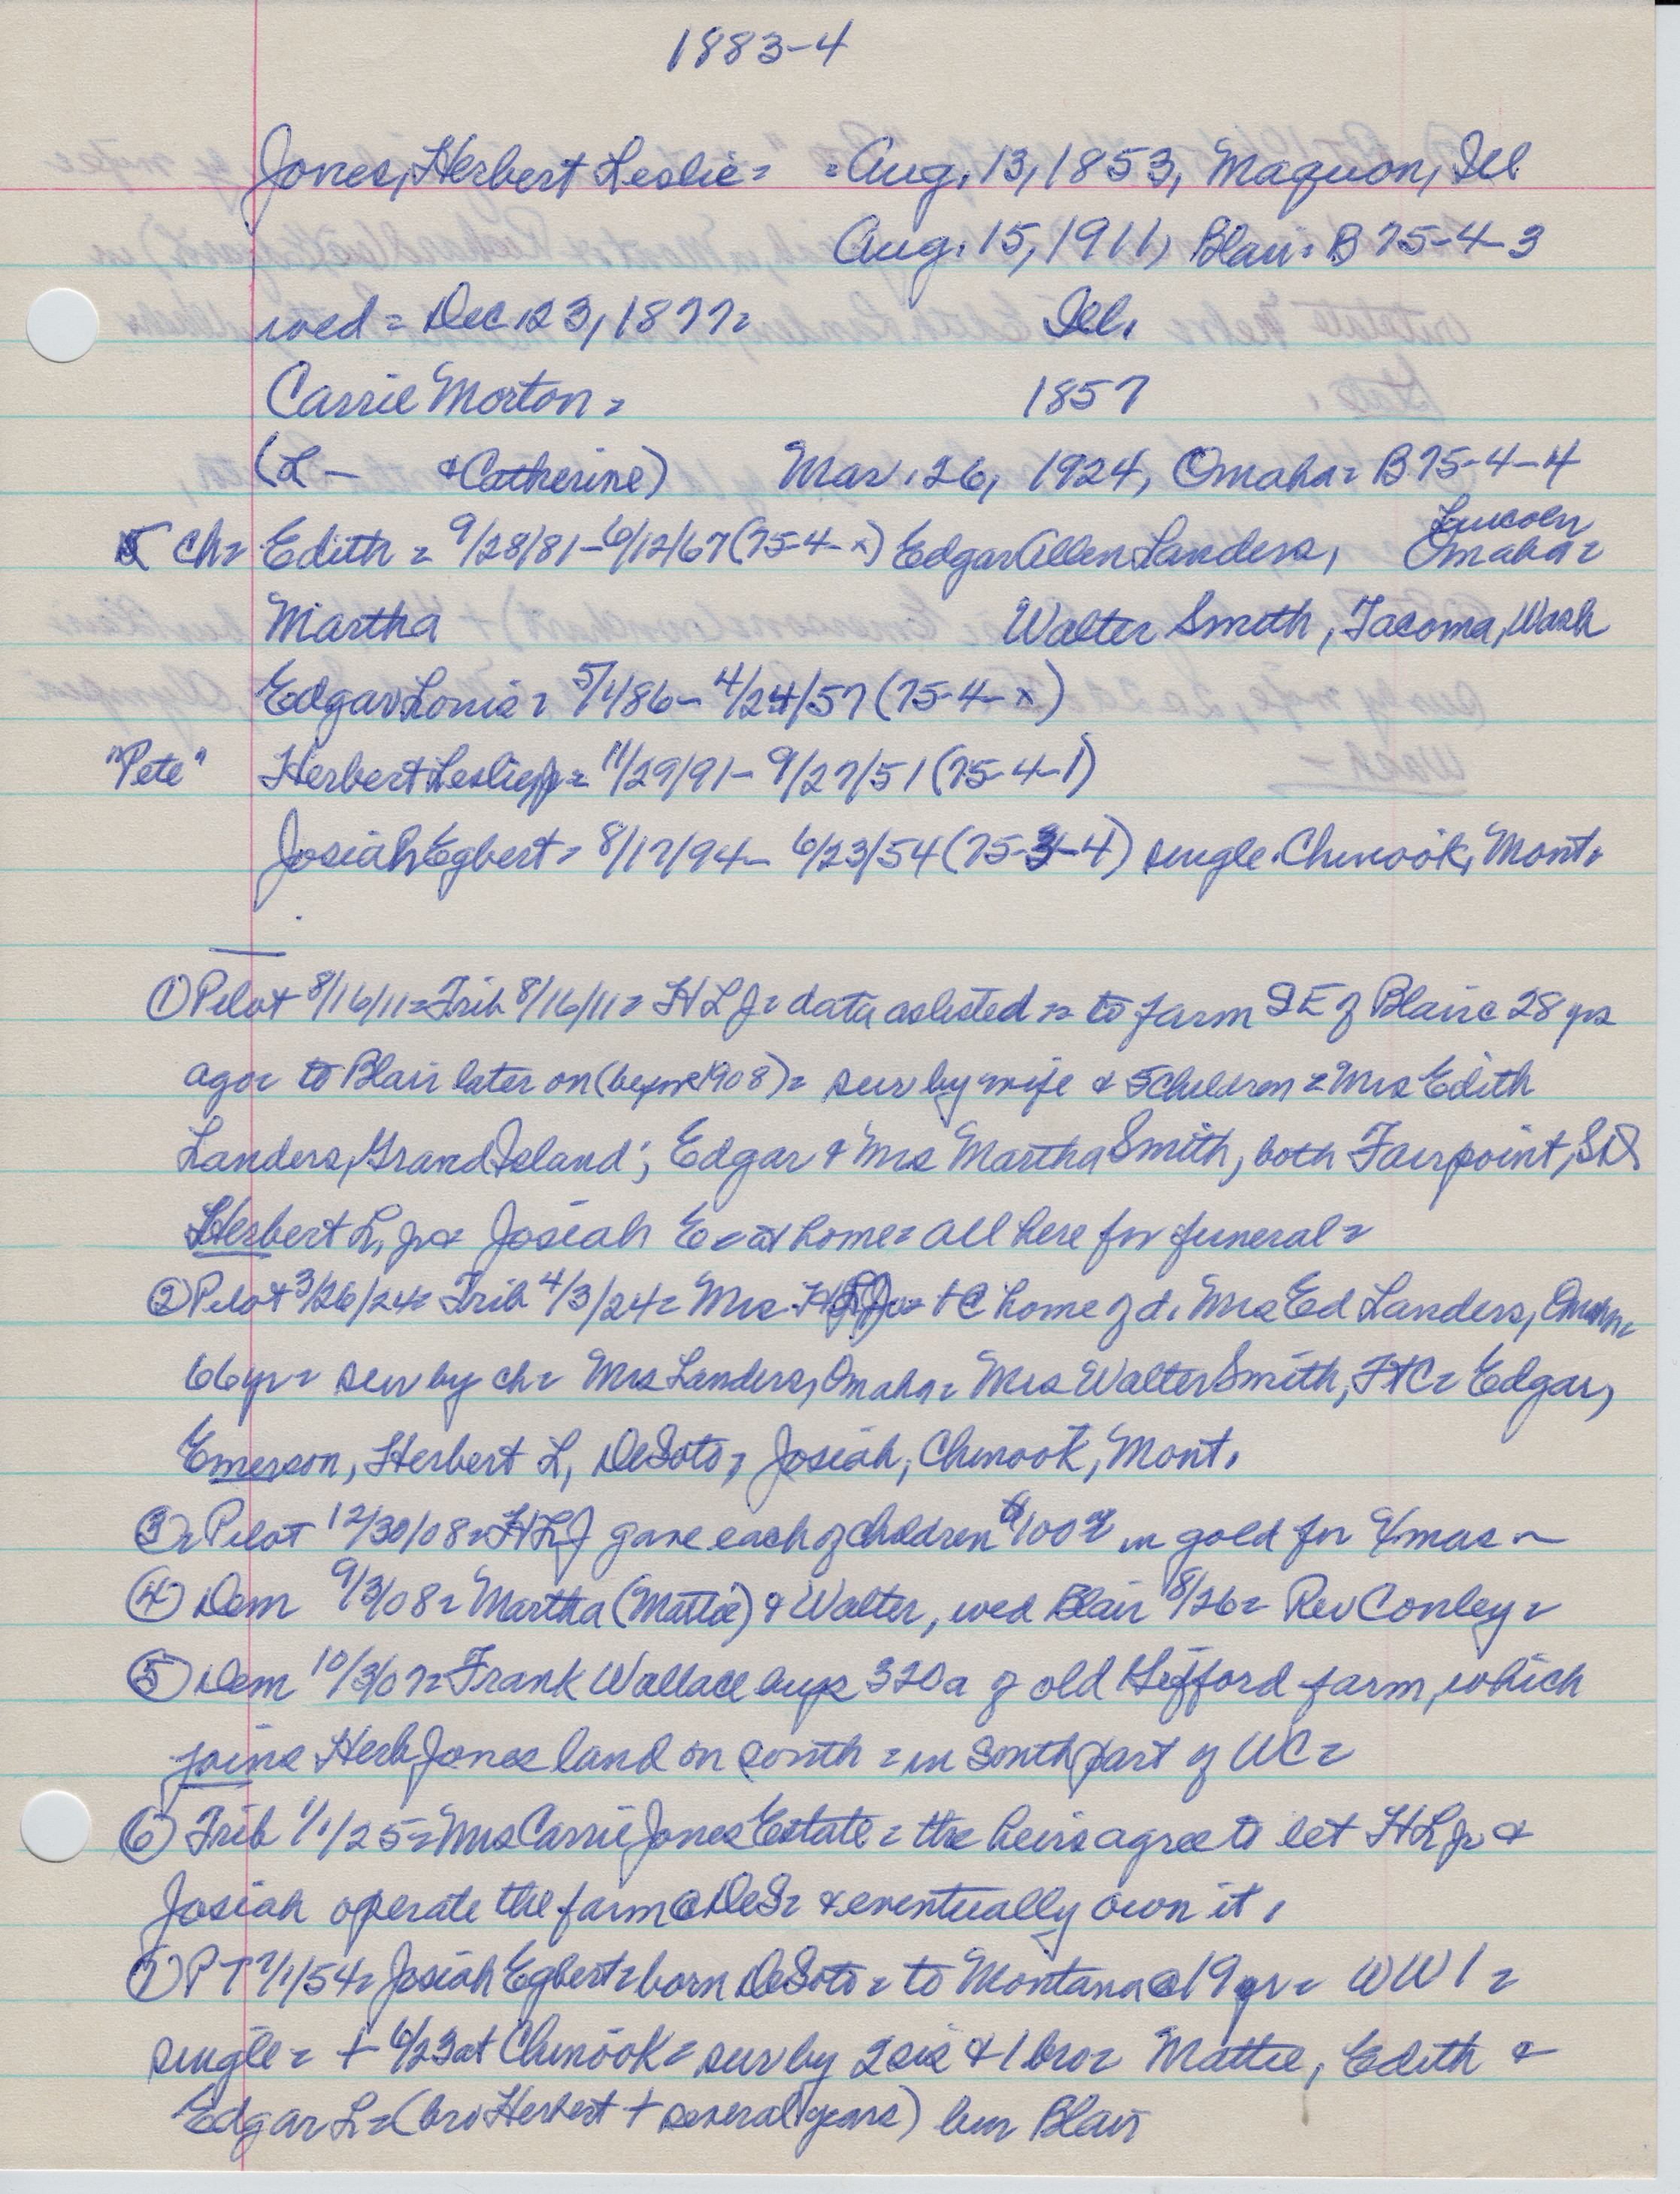 1883-4
Jones, Herbert Leslie = = Aug. 13, 1853, Maquon, Ill
Aug. 15, 1911, Blair = B 75-4-3
wed = Dec 23, 1877 = Ill.
Carrie Morton = 1857
(L - & Catherine) Mar. 26, 1924, Omaha = B 75-4-4
Lincoln
5 ch = Edith = 9/28/81 - 6/12/67 (75-4-x) Edgar Allen Landers, Omaha =
Martha Walter Smith, Tacoma, Wash
Edgar Louis = 5/1/86 - 4/24/57 (75-4-x)
"Pete" Herbert Leslie Jr = 11/29/91 - 9/27/51 (75-4-1)
Josiah Egbert = 8/17/94 - 6/23/54 (75-3-4) single. Chinook, Mont.
① Pilot 8/16/11 = Trib 8/16/11 = HLJ = data as listed = to farm SE of Blair c 28 yrs
ago = to Blair later on (before 1908) = sur by wife & 5 children = Mrs Edith
Landers, Grand Island; Edgar & Mrs Martha Smith, both Fairpoint, SD
Herbert L, Jr & Josiah E = at home = all here for funeral =
② Pilot 3/26/24 = Trib 4/3/24 = Mrs HLJ = + @ home of d. Mrs Ed Landers, Omaha =
66 yr = sur by ch = Mrs Landers, Omaha = Mrs Walter Smith, FtC = Edgar,
Emerson, Herbert L, DeSoto, Josiah, Chinook, Mont.
③ = Pilot 12/30/08 = HLJ gave each of children $100 in gold for Xmas ~
④ Dem 9/3/08 = Martha (Mattie) & Walter, wed Blair 8/26 = Rev Conley =
⑤ Dem 10/3/07 = Frank Wallace buys 320 a of old Gifford farm, which
joins Herb Jones land on south = in south part of WC =
⑥ Trib 1/1/25 = Mrs Carrie Jones Estate = the heirs agree to let HL Jr &
Josiah operate the farm @ DeS = & eventually own it.
⑦ PT 7/1/54 = Josiah Egbert = born DeSoto = to Montana @ 19 yr = WW 1 =
single = + 6/23 at Chinook = sur by 2 sis & 1 bro = Mattie, Edith &
Edgar L = (bro Herbert + several years) bur Blair